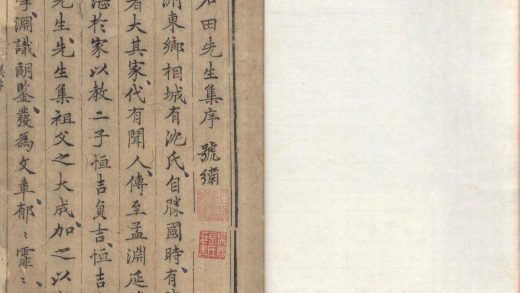 石田先生集序 號
洲東鄉相城有沈氏自勝國時有
者大其家代有聞人傳至孟淵延
於家以教二子恒吉貞吉恒吉
先生先生集祖父之大成加之以
淵識朗鑒發為文章郁〻霏〻